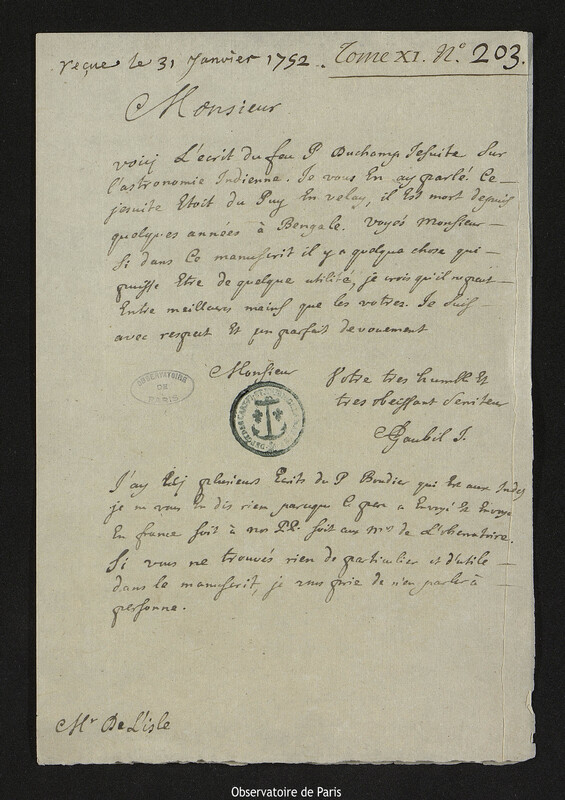 reçue le 31 Janvier 1752. Tome XI. N.° 203.
Monsieur
voicy L'ecrit du feu P Duchamp Jesuite Sur
l'astronomie Indienne. Je vous En ay parlé Ce
jesuite Etoit du Puy En velay, il Est mort depuis
quelques années à Bengale. voyés monsieur
Si dans Ce manuscrit il y a quelque chose qui
puisse Etre de quelque utilité, je crois qu'il ne peut
Entre meilleurs mains que les votres. Je suis
avec respect Et un parfait devouement
Monsieur
Votre tres humble Et
tres obeissant Serviteur
Gaubil J.
OBSERVATOIRE
DE
PARIS
J'ay plusieurs Ecrits du P Boudier qui aux Indes
je ne vous En dis rien parceque Ce pere a Envoyé Et Envoye
En france soit à nos PP. soit aux mrs de L'observatoire.
Si vous ne trouvés rien de particulier et d'utile
dans le manuscrit, je vous prie de n'en parler à
personne.
Mr De L'isle
Observatoire de Paris